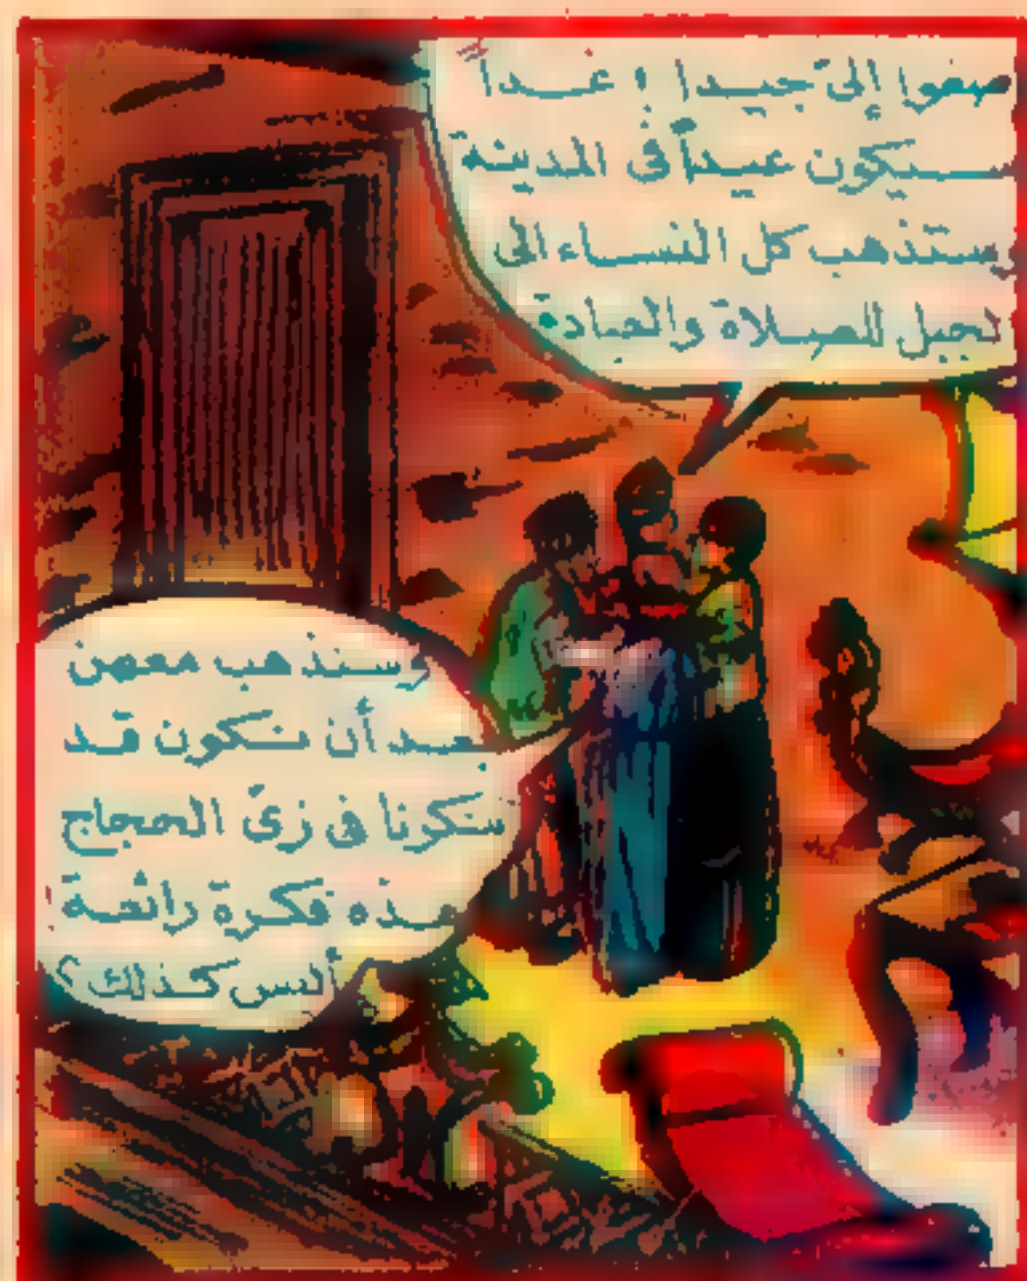 صغوا إلىّ جيدا ؛ غـداً
سـيكون عيداً فى المدينة
وستذهب كل النساء الى
لجبل للصلاة والعبادة
وسنذهب معهن
بعد أن نكون قد
تنكرنا فى زىّ الحجاج
هذه فكرة رائعة
أليس كذلك ؟